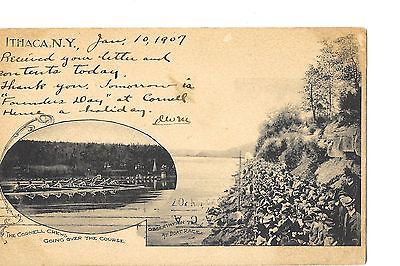 ITHACA, N.Y. Jan, 10, 1907
Received your letter and
contents today.
Thank you. Tomorrow is
"Founders Day" at Cornell
Hence a holiday.
THE CORNELL CREWS
GOING OVER THE COURSE.
OBSERVATION TRAIN
AT BOAT RACE.